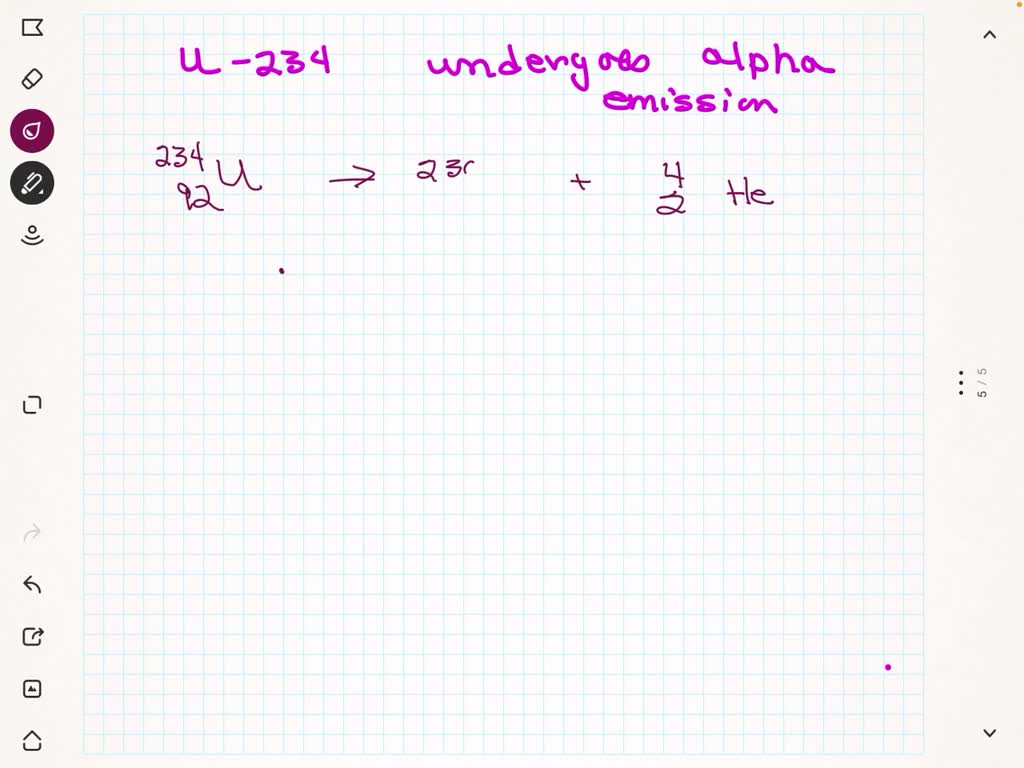 U-234 undergoes alpha
emission
234 92 U → 23 + 4 2 He
5 / 5